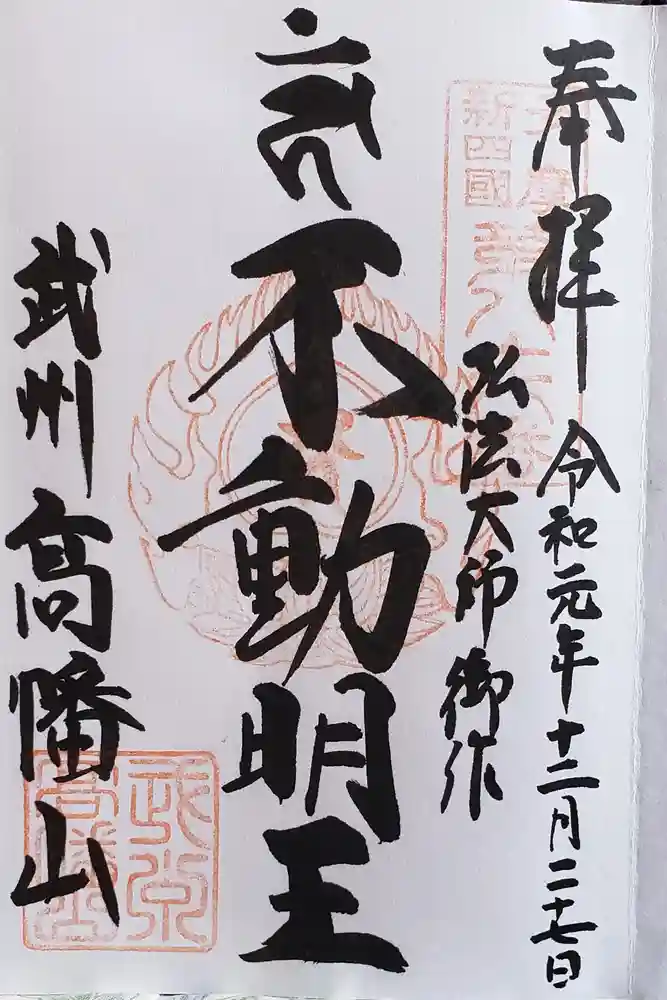 奉拝
令和元年十二月二十七日
弘法大師御作
不動明王
武州
高幡山
新四國